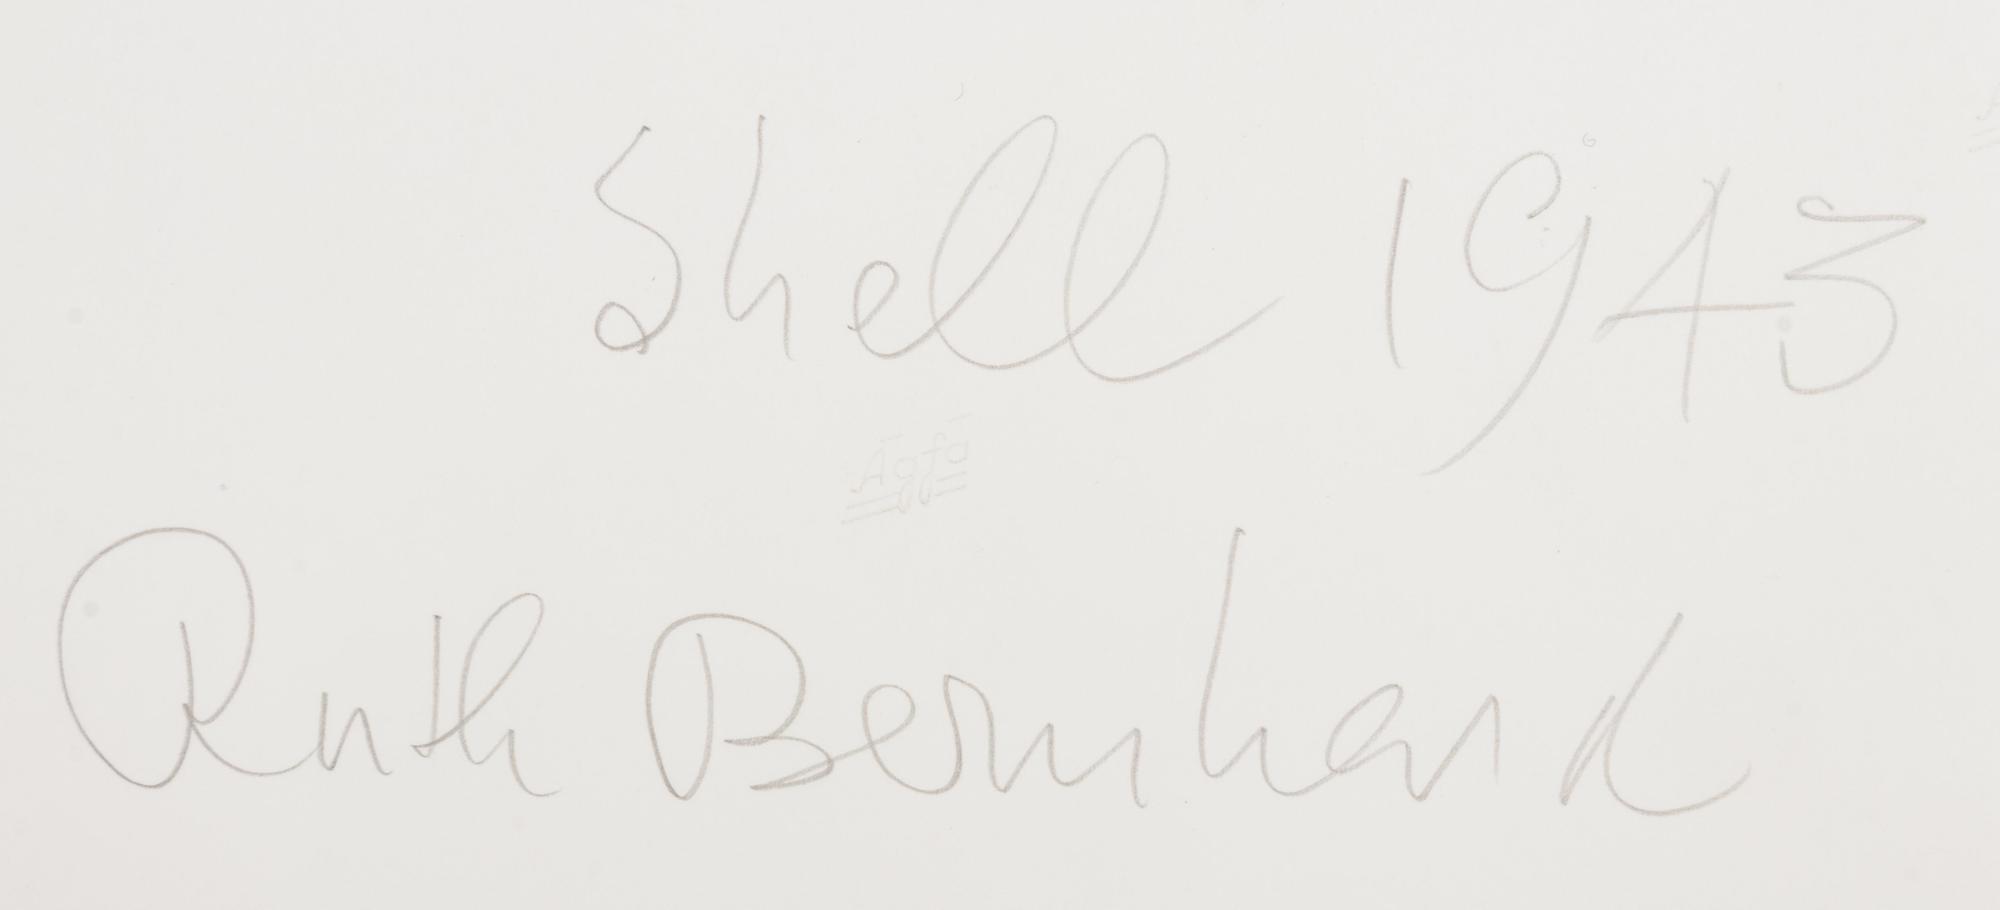 Shell 1943
Agfa
Ruth Bernhard